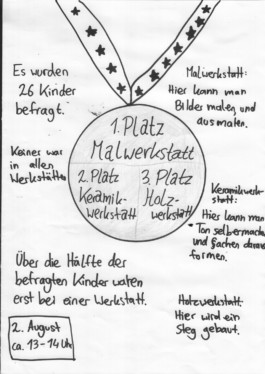 Es wurden
26 Kinder
befragt.
Malwerkstatt:
Hier kann man
Bilder malen und
ausmalen.
1. Platz
Malwerkstatt
2. Platz
Keramik-
werkstatt
3. Platz
Holz-
werkstatt
Keiner war
in allen
Werkstätten
Keramikwerk-
statt:
Hier kann man
Ton selbermachen
und Sachen daraus
formen.
Über die Hälfte der
befragten Kinder waren
erst bei einer Werkstatt.
Holzwerkstatt:
Hier wird ein
Steg gebaut.
2. August
ca. 13-14 Uhr